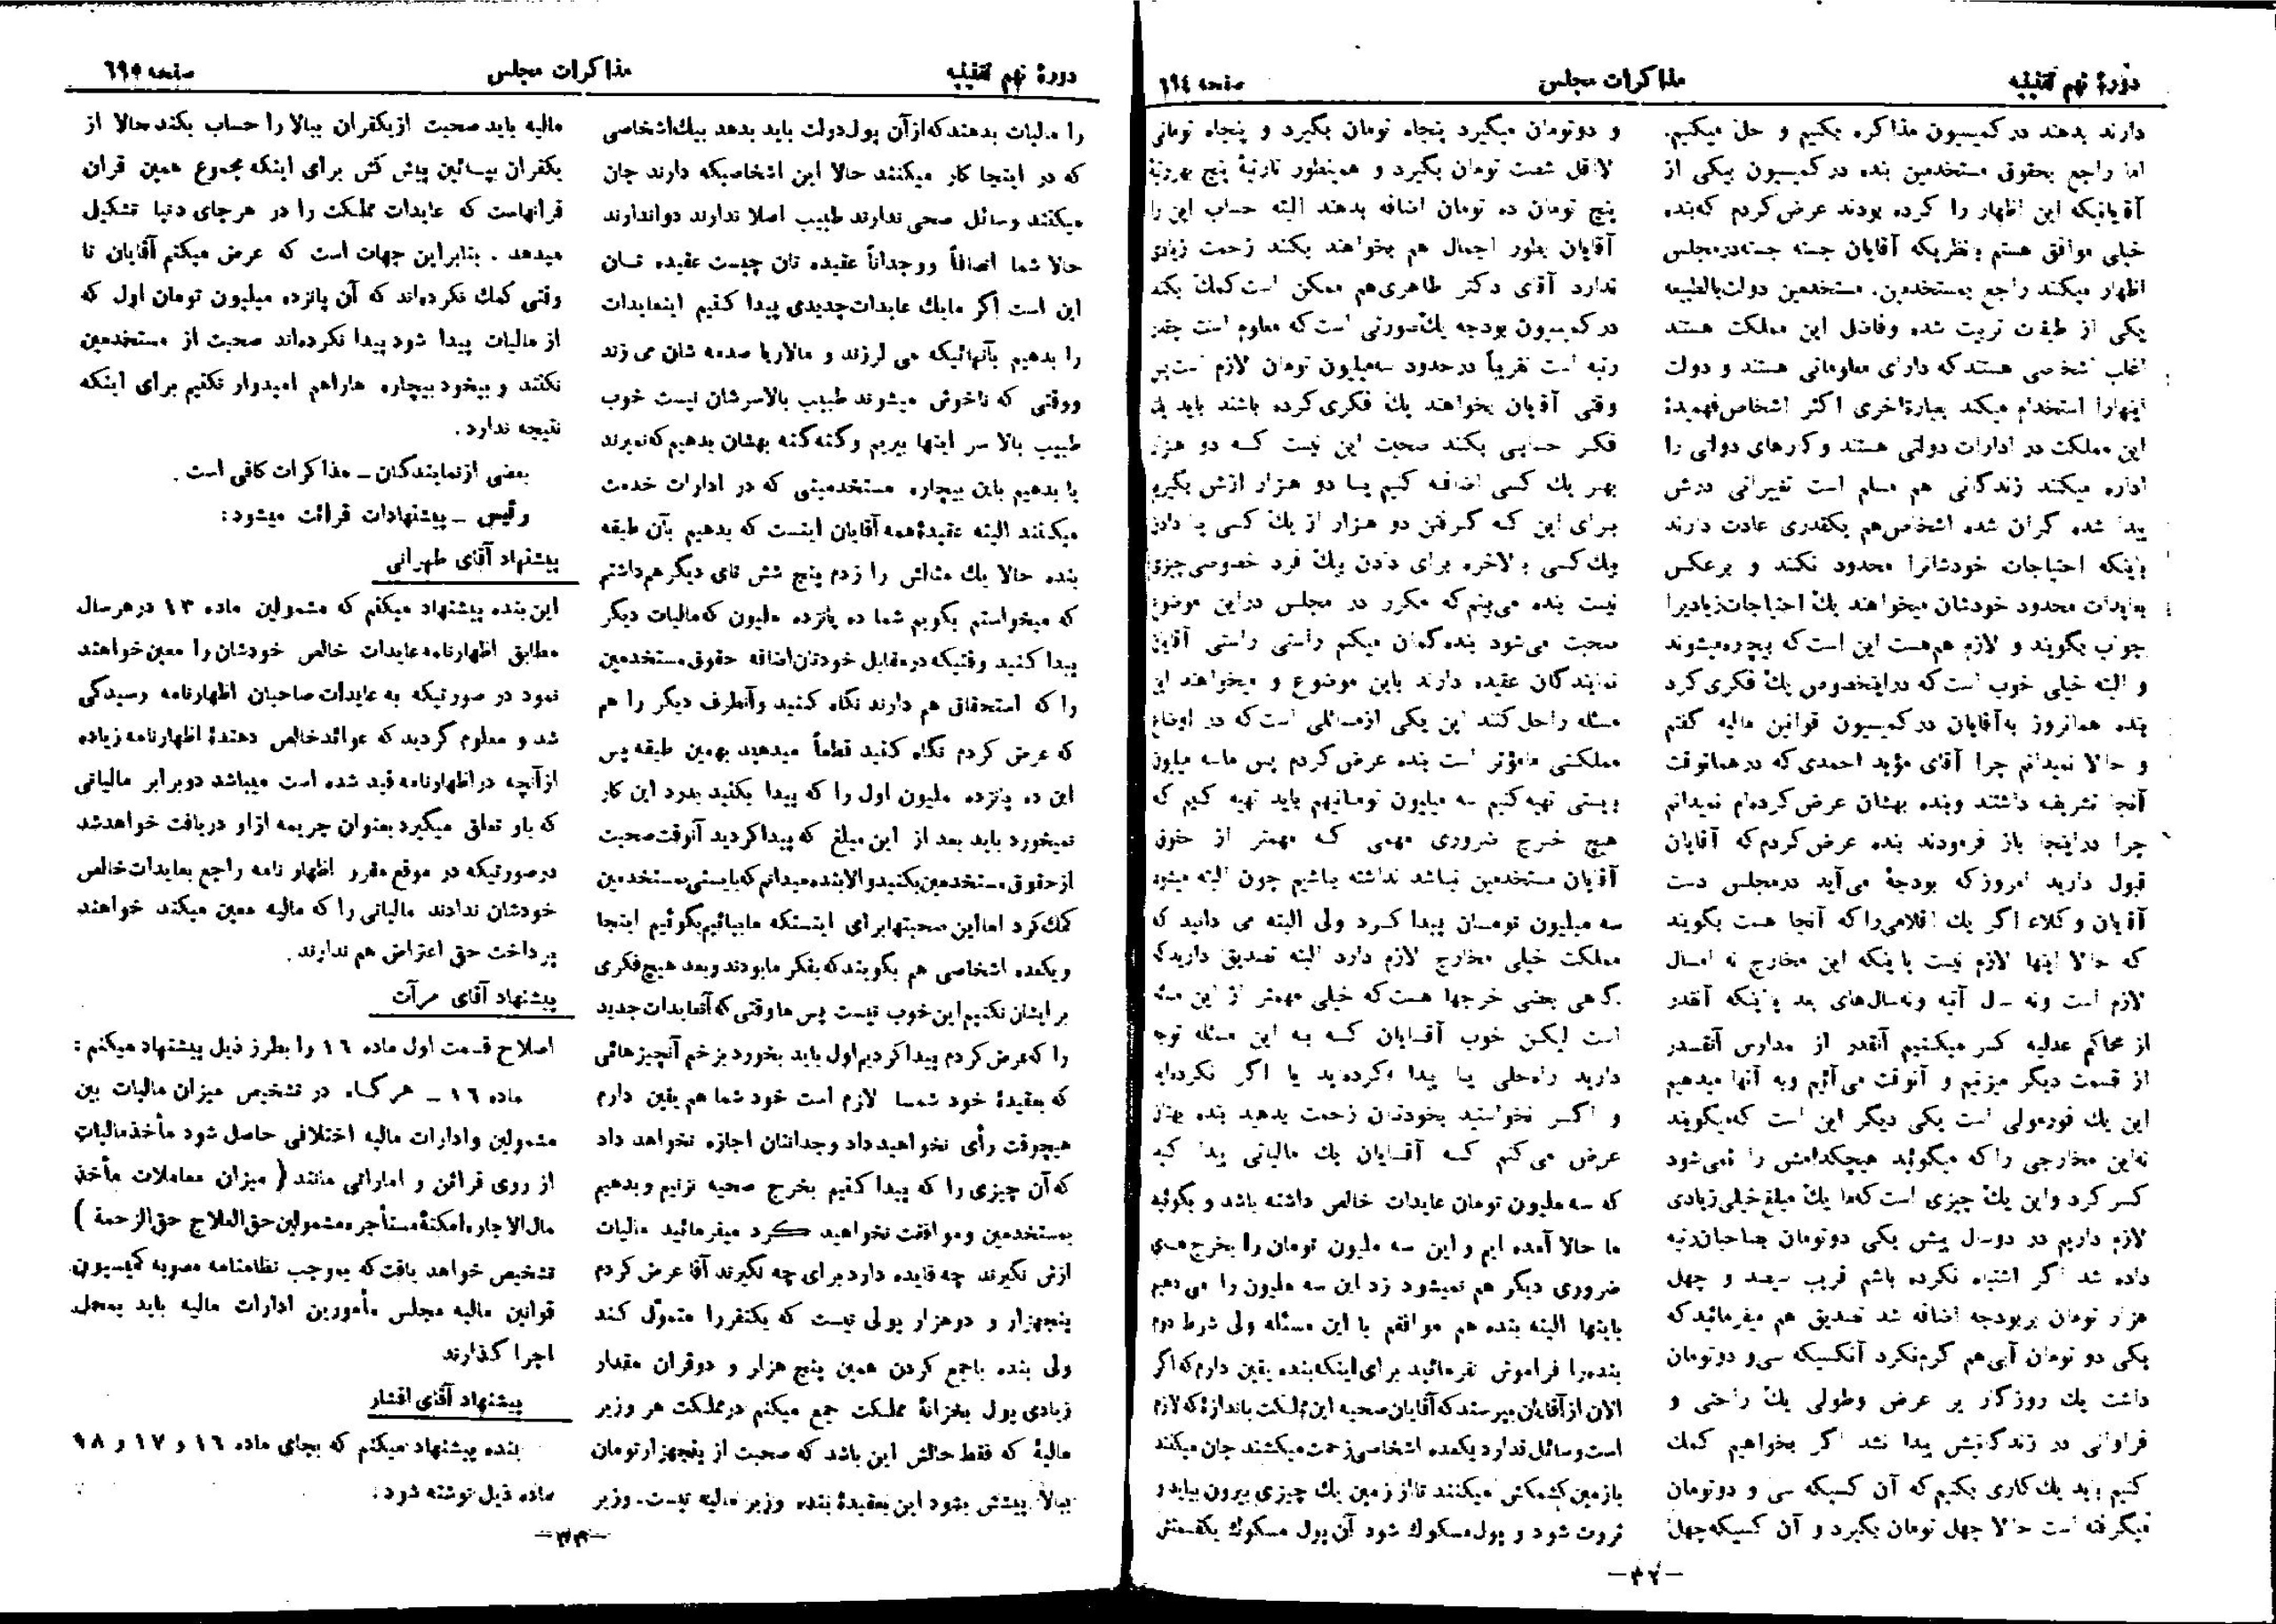 دورهٔ نهم تقنینیه
مذاکرات مجلس
صفحه ٦٩٤
دارند بدهند در کمیسیون مذاکره بکنیم و حل میکنیم.
اما راجع بحقوق مستخدمین بنده در کمیسیون بیکی از
آقایانیکه این اظهار را کرده بودند عرض کردم که بنده
خیلی موافق هستم بنظریکه آقایان جسته جسته در مجلس
اظهار میکنند راجع بمستخدمین. مستخدمین دولت بالطبیعه
یکی از طبقات تربیت شده وفاضل این مملکت هستند
اغلب اشخاصی هستند که دارای معلوماتی هستند و دولت
اینها را استخدام میکند بعبارة اخری اکثر اشخاص فهمیدهٔ
این مملکت در ادارات دولتی هستند و کارهای دولتی را
اداره میکنند زندگانی هم مسلم است تغییراتی درش
پیدا شده گران شده اشخاص هم یکقدری عادت دارند
باینکه احتیاجات خودشانرا محدود نکنند و برعکس
بعایدات محدود خودشان میخواهند یك احتیاجات زیادیرا
جواب بگویند و لازم هم هست این است که بیچاره میشوند
و البته خیلی خوب است که در اینخصوص یك فکری کرد
بنده همانروز به آقایان در کمیسیون قوانین مالیه گفتم
و حالا نمیدانم چرا آقای مؤید احمدی که در همانوقت
آنجا تشریف داشتند وبنده بهشان عرض کرده‌ام نمیدانم
چرا در اینجا باز فرمودند بنده عرض کردم که آقایان
قبول دارید امروز که بودجهٔ می‌آید در مجلس دست
آقایان وکلاء اگر یك اقلامی را که آنجا هست بگویند
که حالا اینها لازم نیست یا اینکه این مخارج نه امسال
لازم است ونه سال آتیه ونه سال‌های بعد یا اینکه آنقدر
از محاکم عدلیه کسر میکنیم آنقدر از مدارس آنقدر
از قسمت دیگر میزنیم و آنوقت می‌آئیم وبه آنها میدهیم
این یك فورمولی است یکی دیگر این است که میگویند
نه این مخارجی را که میگوئید هیچکدامش را نمی‌شود
کسر کرد واین یك چیزی است که ما یك مبلغ خیلی زیادی
لازم داریم در دوسال پیش یکی دوتومان بصاحبان رتبه
داده شد اگر اشتباه نکرده باشم قریب سیصد و چهل
هزار تومان بر بودجه اضافه شد تصدیق هم میفرمائید که
یکی دو تومان آبی هم گرم نکرد آنکسیکه سی و دوتومان
داشت یك روزگار پر عرض وطولی یك راحتی و
فراوانی در زندگانیش پیدا نشد اگر بخواهیم کمك
کنیم باید یك کاری بکنیم که آن کسیکه سی و دوتومان
میگرفته است حالا چهل تومان بگیرد و آن کسیکه چهل
و دوتومان میگیرد پنجاه تومان بگیرد و پنجاه تومانی
لااقل شصت تومان بگیرد و همینطور تا رتبهٔ پنج بهر رتبهٔ
پنج تومان ده تومان اضافه بدهند البته حساب این را
آقایان بطور اجمال هم بخواهند بکنند زحمت زیادی
ندارد آقای دکتر طاهری هم ممکن است کمك بکند
در کمیسیون بودجه یك صورتی است که معلوم است چقدر
رتبه است تقریباً در حدود سه میلیون تومان لازم است پس
وقتی آقایان بخواهند یك فکری کرده باشند باید یك
فکر حسابی بکنند صحبت این نیست که دو هزار
بهر یك کسی اضافه کنیم یا دو هزار ازش بگیریم
برای این که گرفتن دو هزار از یك کسی یا دادن
بیك کسی بالاخره برای دادن بیك فرد خصوصی چیزی
نیست بنده می‌بینم که مکرر در مجلس در این موضوع
صحبت می‌شود بنده گمان میکنم راستی راستی آقایان
نمایندگان عقیده دارند باین موضوع و میخواهند این
مسئله را حل کنند این یکی از مسائلی است که در اوضاع
مملکتی ما مؤثر است بنده عرض کردم پس ما سه میلیون
بیستی تهیه کنیم سه میلیون تومانیهم باید تهیه کنیم که
هیچ خرج ضروری مهمی که مهمتر از حقوق
آقایان مستخدمین نباشد نداشته باشیم چون البته میشود
سه میلیون تومان پیدا کرد ولی البته می دانید که
مملکت خیلی مخارج لازم دارد البته تصدیق دارید که
گاهی بعضی خرجها هست که خیلی مهمتر از این مسئله
است لیکن خوب آقایان که به این مسئله توجه
دارید راه‌حلی یا پیدا کرده‌اید یا اگر نکرده‌اید
و اگر نخواستید بخودتان زحمت بدهید بنده بهتان
عرض می‌کنم که آقایان یك مالیاتی پیدا کنید
که سه ملیون تومان عایدات خالص داشته باشد و بگوئید
ما حالا آمده ایم و این سه ملیون تومان را بخرج های
ضروری دیگر هم نمیشود زد این سه ملیون را می دهیم
باینها البته بنده هم موافقم با این مسئله ولی شرط دوم
بنده را فراموش نفرمائید برای اینکه بنده یقین دارم که اگر
الان از آقایان بپرسند که آقایان صحیه این مملکت باندازهٔ که لازم
است وسائل ندارد یکعده اشخاصی زحمت میکشند جان میکنند
بازمین کشمکش میکنند تا از زمین یك چیزی بیرون بیاید و
ثروت شود و پول مسکوك شود آن پول مسکوك یکقسمتش
—۳۲—
دورهٔ نهم تقنینیه
مذاکرات مجلس
صفحه ٦٩٥
را مالیات بدهند که از آن پول دولت باید بدهد بیك اشخاصی
که در اینجا کار میکنند حالا این اشخاصیکه دارند جان
میکنند وسائل صحی ندارند طبیب اصلا ندارند دوا ندارند
حالا شما انصافاً ووجداناً عقیده تان چیست عقیده تان
این است اگر ما یك عایدات جدیدی پیدا کنیم اینعایدات
را بدهیم بآنهائیکه می لرزند و مالاریا صدمه شان می زند
ووقتی که ناخوش میشوند طبیب بالاسرشان نیست خوب
طبیب بالا سر اینها ببریم وگنه گنه بهشان بدهیم که نمیرند
یا بدهیم باین بیچاره مستخدمینی که در ادارات خدمت
میکنند البته عقیدهٔ همه آقایان اینست که بدهیم بآن طبقه
بنده حالا یك مثالش را زدم پنج شش تای دیگر هم داشتم
که میخواستم بگویم شما ده پانزده ملیون که مالیات دیگر
پیدا کنید وقتیکه در مقابل خودتان اضافه حقوق مستخدمین
را که استحقاق هم دارند نگاه کنید وآنطرف دیگر را هم
که عرض کردم نگاه کنید قطعاً میدهید بهمین طبقه پس
این ده پانزده ملیون اول را که پیدا بکنید بدرد این کار
نمیخورد باید بعد از این مبلغ که پیدا کردید آنوقت صحبت
از حقوق مستخدمین بکنید والا بنده میدانم که بایستی بمستخدمین
کمك کرد اما این صحبتها برای اینستکه ما بیائیم بگوئیم اینجا
ویکعده اشخاصی هم بگویند که بفکر ما بودند وبعد هیچ فکری
برایشان نکنیم این خوب نیست پس ما وقتی که آنعایدات جدید
را که عرض کردم پیدا کردیم اول باید بخورد بزخم آنچیزهائی
که بعقیدهٔ خود شما لازم است خود شما هم یقین دارم
هیچوقت رأی نخواهید داد وجدانتان اجازه نخواهد داد
که آن چیزی را که پیدا کنیم بخرج صحیه نزنیم وبدهیم
بمستخدمین وموافقت نخواهید کرد میفرمائید مالیات
ازش نگیرند چه فایده دارد برای چه نگیرند آقا عرض کردم
پنجهزار و دوهزار پولی نیست که یکنفر را متمول کند
ولی بنده باجمع کردن همین پنج هزار و دوقران مقدار
زیادی پول بخزانهٔ مملکت جمع میکنم در مملکت هر وزیر
مالیهٔ که فقط حالش این باشد که صحبت از پنجهزار تومان
ببالا پیشش بشود این بعقیدهٔ بنده وزیر مالیه نیست. وزیر
مالیه باید صحبت از یکقران ببالا را حساب بکند حالا از
یکقران بپائین پیش کش برای اینکه مجموع همین قران
قرانهاست که عایدات مملکت را در هرجای دنیا تشکیل
میدهد . بنابراین جهات است که عرض میکنم آقایان تا
وقتی کمك نکرده‌اند که آن پانزده میلیون تومان اول که
از مالیات پیدا شود پیدا نکرده‌اند صحبت از مستخدمین
نکنند و بیخود بیچاره هاراهم امیدوار نکنیم برای اینکه
نتیجه ندارد.
بعضی از نمایندگان ـ مذاکرات کافی است .
رئیس ـ پیشنهادات قرائت میشود:
پیشنهاد آقای طهرانی
این بنده پیشنهاد میکنم که مشمولین ماده ۱۳ در هر سال
مطابق اظهارنامه عایدات خالص خودشان را معین خواهند
نمود در صورتیکه به عایدات صاحبان اظهارنامه رسیدگی
شد و معلوم گردید که عوائد خالص دهندهٔ اظهارنامه زیاده
از آنچه در اظهارنامه قید شده است میباشد دوبرابر مالیاتی
که باو تعلق میگیرد بعنوان جریمه از او دریافت خواهد شد
در صورتیکه در موقع مقرر اظهار نامه راجع بعایدات خالص
خودشان ندادند مالیاتی را که مالیه معین میکند خواهند
پرداخت حق اعتراض هم ندارند.
پیشنهاد آقای مرآت
اصلاح قسمت اول ماده ١٦ را بطرز ذیل پیشنهاد میکنم :
ماده ١٦ ـ هرگاه در تشخیص میزان مالیات بین
مشمولین وادارات مالیه اختلافی حاصل شود مأخذ مالیات
از روی قرائن و اماراتی مانند ( میزان معاملات مأخذ
مال‌الاجاره امکنهٔ مستأجره مشمولین حق العلاج حق الزحمة )
تشخیص خواهد یافت که بموجب نظامنامه مصوبه کمیسیون
قوانین مالیه مجلس مأمورین ادارات مالیه باید بمحل
اجرا گذارند
پیشنهاد آقای افشار
بنده پیشنهاد میکنم که بجای ماده ١٦ و ١٧ و ١٨
ماده ذیل نوشته شود:
—۳۳—